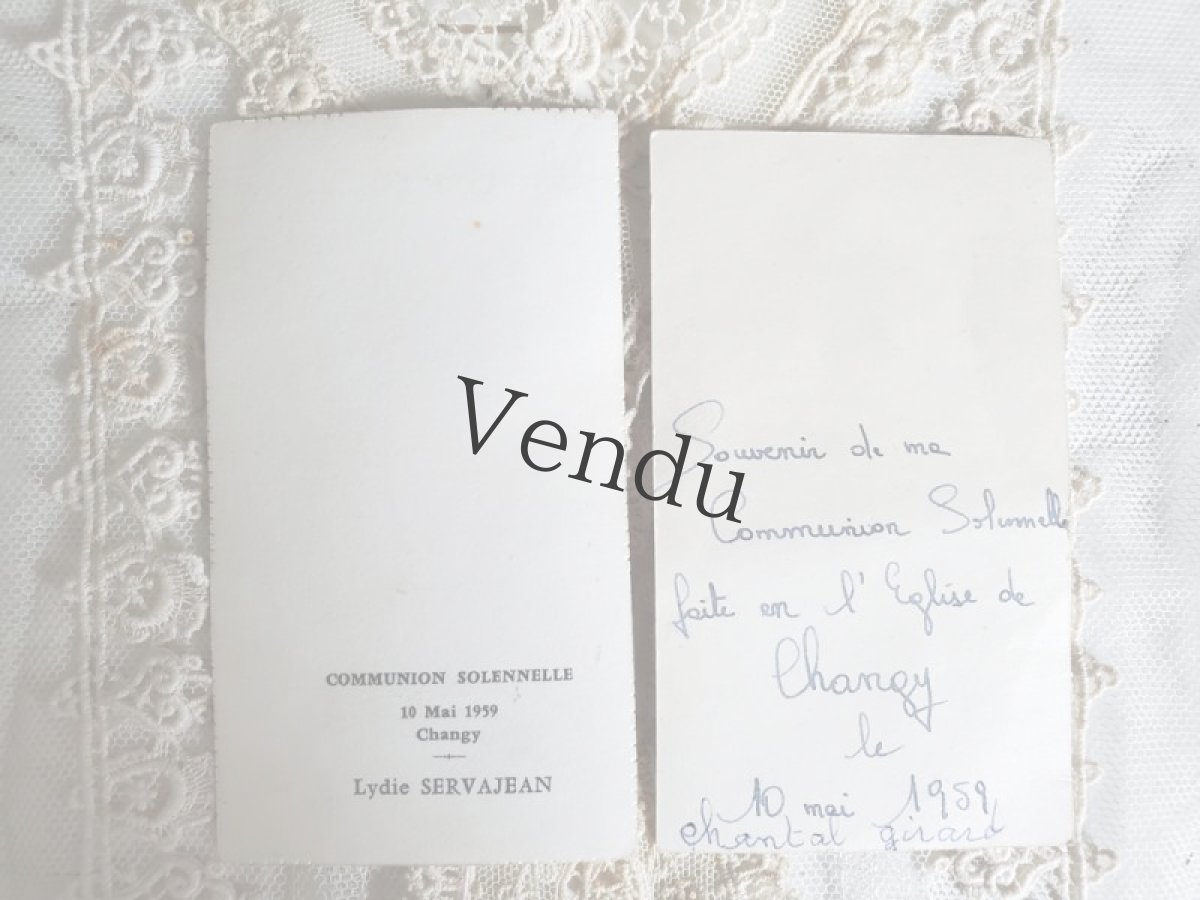 COMMUNION SOLENNELLE
10 Mai 1959
Changy
Lydie SERVAJEAN
Vendu
Souvenir de ma
Communion Solennelle
faite en l'Eglise de
Changy
le
10 mai 1959
chantal girard